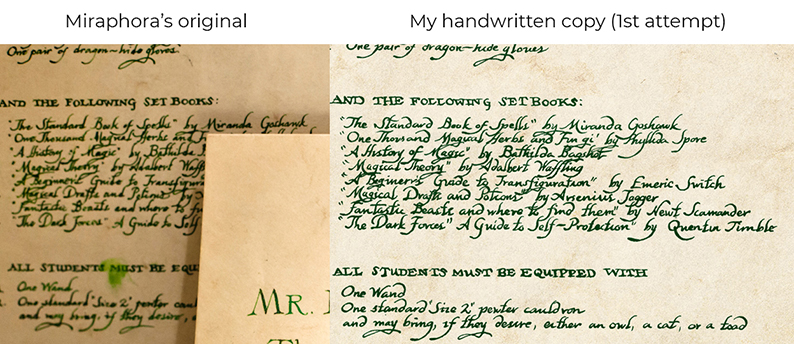 Miraphora's original
One pair of dragon-hide gloves
AND THE FOLLOWING SET BOOKS:
"The Standard Book of Spells" by Miranda Goshawk
"One Thousand Magical Herbs and F
"A History of Magic" by Bathilda
"Magical Theory" by Adalbert Waffl
"A Beginners' Guide to Transfigura
"Magical Drafts and Potions" by
"Fantastic Beasts and where to fi
"The Dark Forces" A Guide to Self
ALL STUDENTS MUST BE EQUI
One Wand
One standard 'Size 2' pewter caul
and may bring, if they desire,
MR.
My handwritten copy (1st attempt)
One pair of dragon-hide gloves
AND THE FOLLOWING SET BOOKS:
"The Standard Book of Spells" by Miranda Goshawk
"One Thousand Magical Herbs and Fungi" by Phyllida Spore
"A History of Magic" by Bathilda Bagshot
"Magical Theory" by Adalbert Waffling
"A Beginner's Guide to Transfiguration" by Emeric Switch
"Magical Drafts and Potions" by Arsenius Jogger
"Fantastic Beasts and where to find them" by Newt Scamander
"The Dark Forces" A Guide to Self-Protection" by Quentin Timble
ALL STUDENTS MUST BE EQUIPPED WITH
One Wand
One standard 'Size 2' pewter cauldron
and may bring, if they desire, either an owl, a cat, or a toad